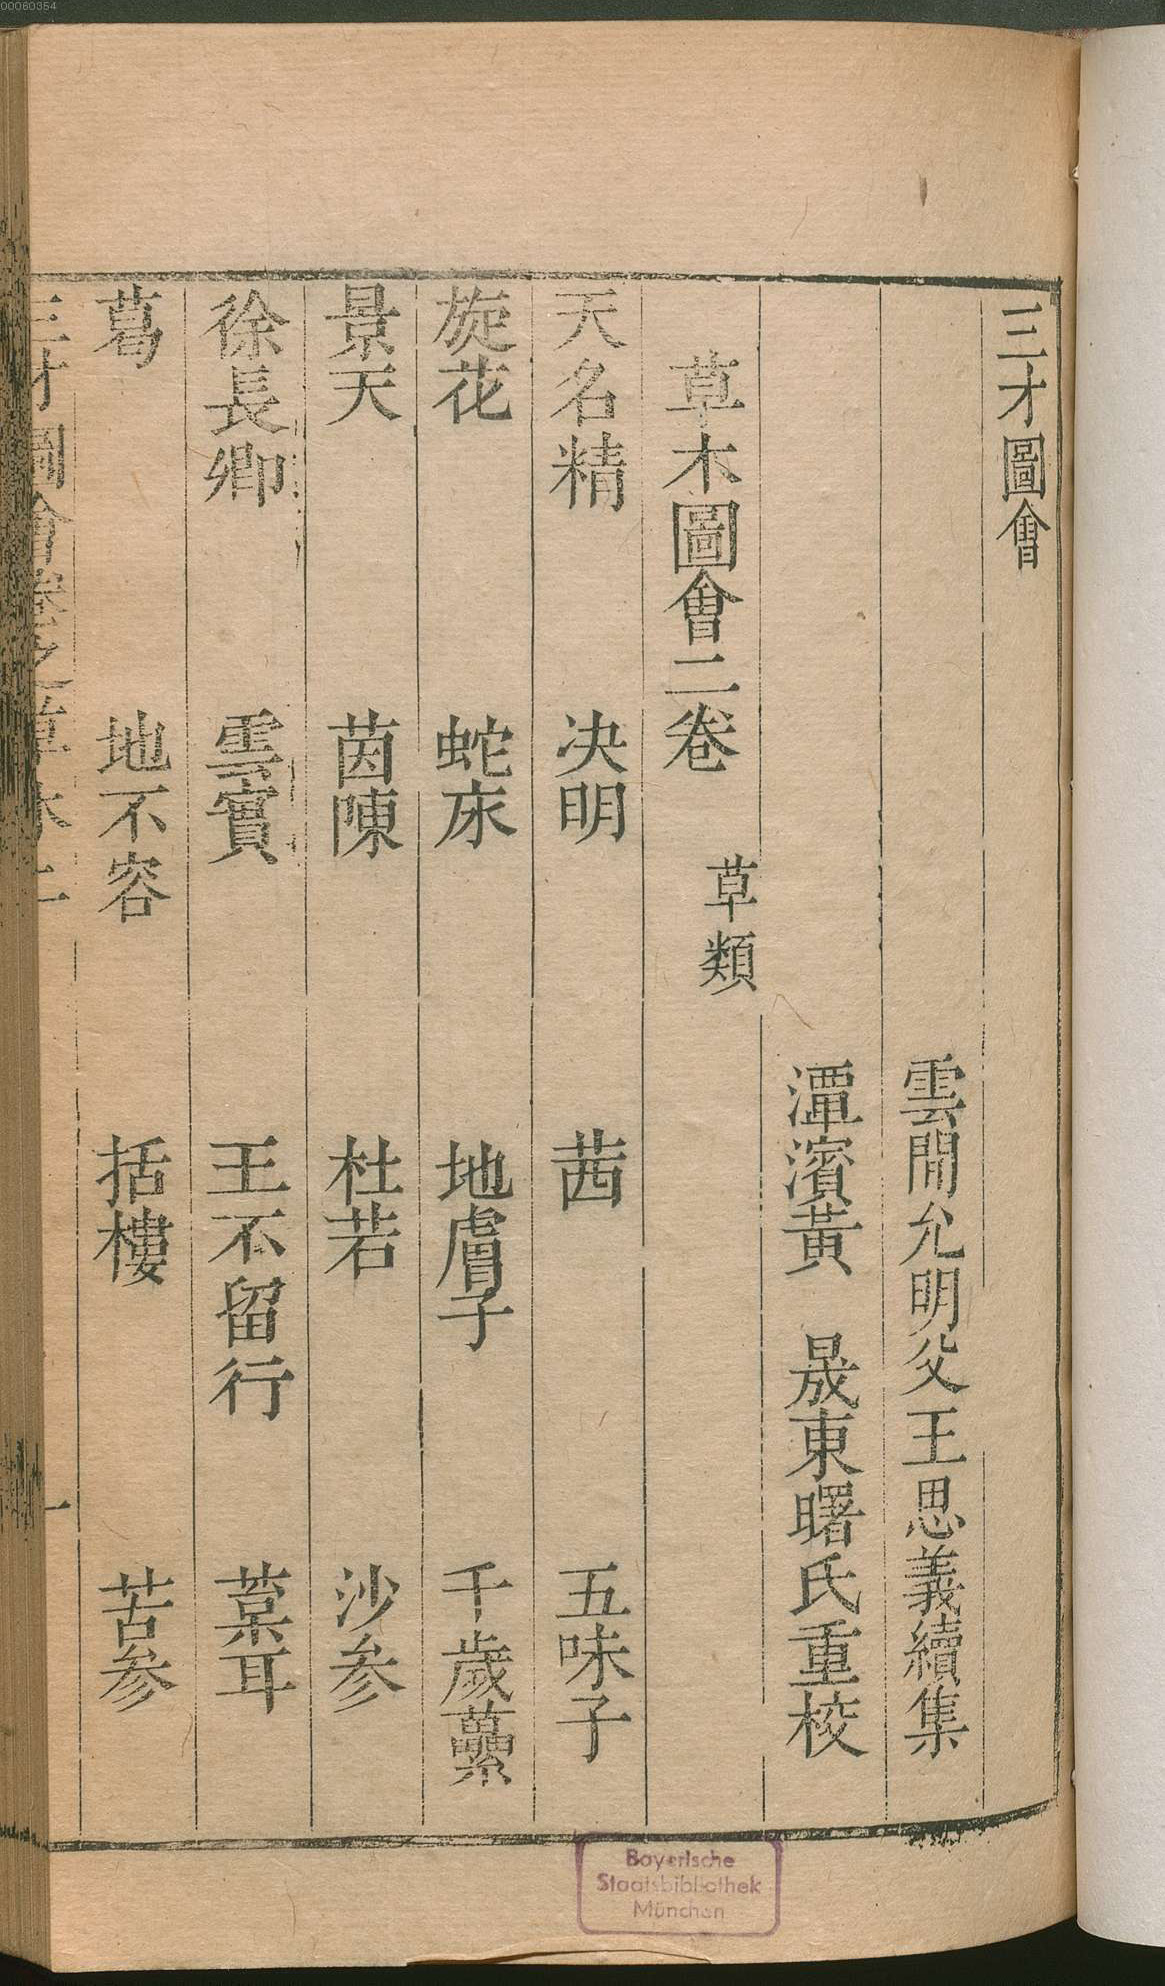 00060354
三才圖會
雲間允明父王思義續集
潭濱黃 晟東曙氏重校
草木圖會二卷 草類
天名精 决明 茜 五味子
旋花 蛇床 地膚子 千歲虆
景天 茵陳 杜若 沙参
徐長卿 雲實 王不留行 葈耳
葛 地不容 括樓 苦参
三才圖會 卷之 草木二 一
Bayerische
Staatsbibliothek
München